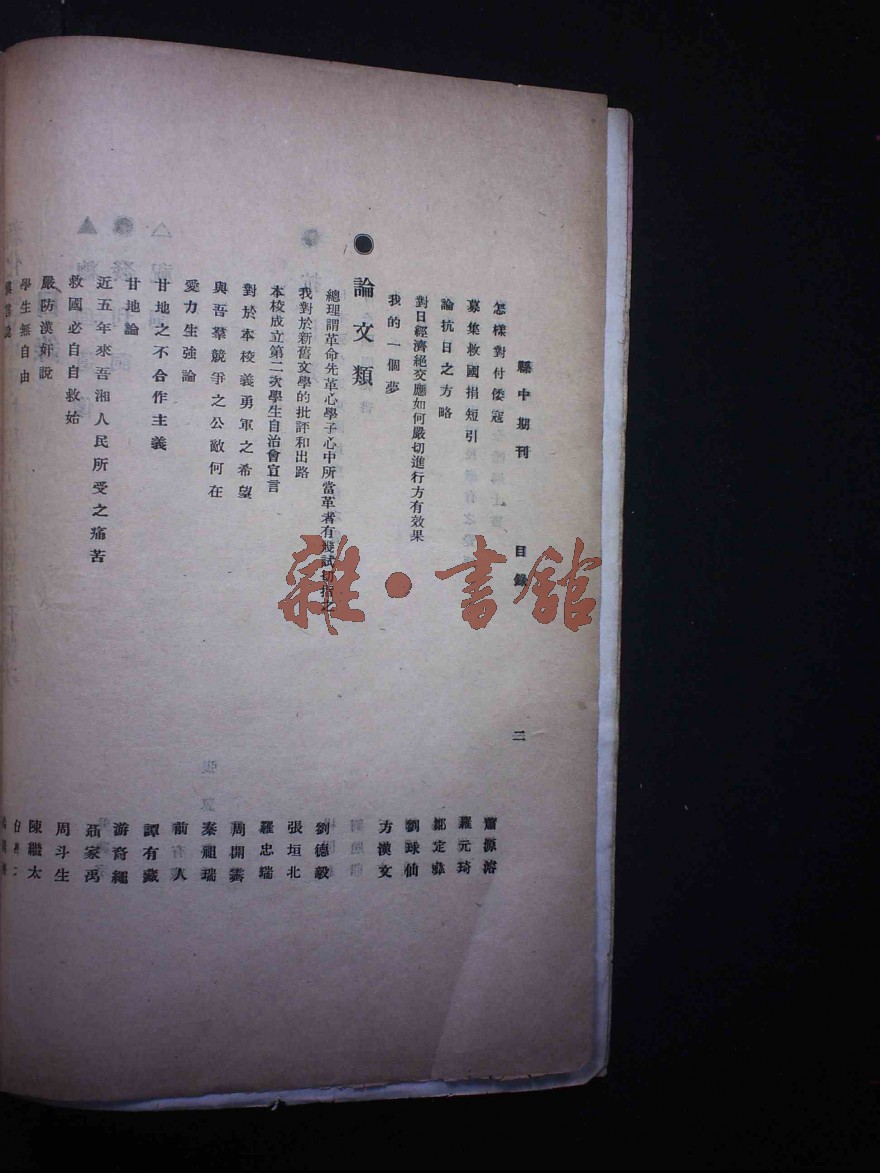 縣中期刊 目錄 二
怎樣對付倭寇 蕭源溶
募集救國捐短引 羅元琦
論抗日之方略 鄒定彝
對日經濟絕交應如何嚴切進行方有效果 劉球仙
我的一個夢 方漢文
●論文類
總理謂革命先革心學子心中所當革者有幾試切指之 劉德毅
我對於新舊文學的批評和出路 張垣北
本校成立第二次學生自治會宣言 羅忠瑞
對於本校義勇軍之希望 周開
與吾羣競爭之公敵何在 秦祖瑞
愛力生強論 前人
甘地之不合作主義 譚有藏
甘地論 游裔繩
近五年來吾湘人民所受之痛苦 茹家禹
救國必自自救始 周斗生
嚴防漢奸說 陳繼太
學生無自由
雜·書館